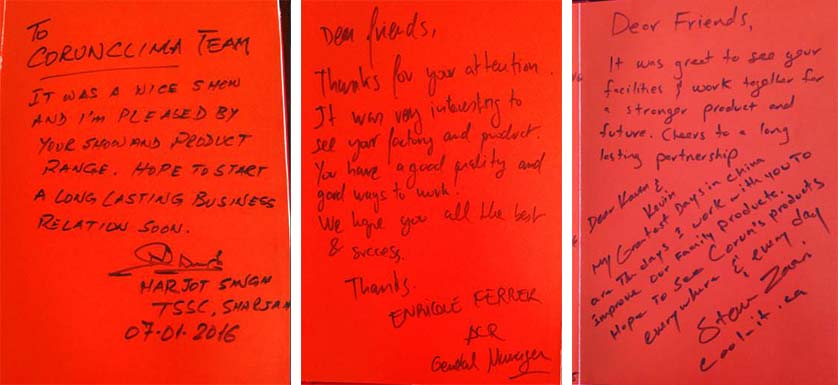 To
CORUNCLIMA TEAM
IT WAS A NICE SHOW
AND I'M PLEASED BY
YOUR SHOW AND PRODUCT
RANGE. HOPE TO START
A LONG LASTING BUSINESS
RELATION SOON.
HARJOT SINGH
TSSC, SHARJAH
07-01-2016
Dear friends,
Thanks for your attention.
It was very interesting to
see your factory and product.
You have a good quality and
good ways to work.
We hope you all the best
& success.
Thanks.
ENRIQUE FERRER
ACR
General Manager
Dear Friends,
It was great to see your
facilities & work together for
a stronger product and
future. Cheers to a long
lasting partnership
Dear Karen &
Kevin
My Greatest Days in China
are The days I work with you To
improve our Family Products.
Hope To See Corun's products
everywhere & every day
Steve Zaari
coolit.ca